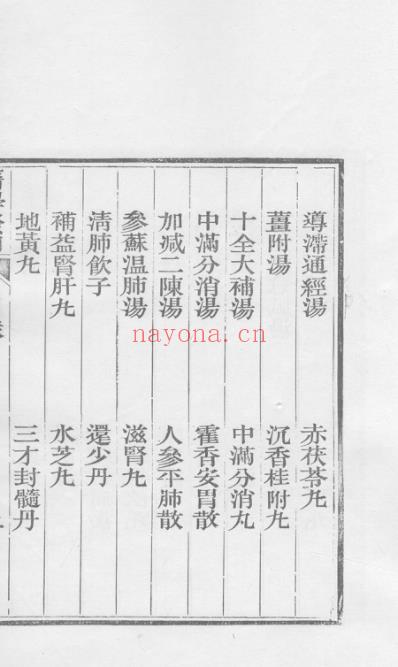 導滯通經湯
赤茯苓丸
薑附湯
沉香桂附丸
十全大補湯
中滿分消丸
中滿分消湯
藿香安胃散
加减二陳湯
人參平肺散
參蘇温肺湯
滋腎丸
清肺飲子
還少丹
補益腎肝丸
水芝丸
地黃丸
三才封髓丹
nayona.cn